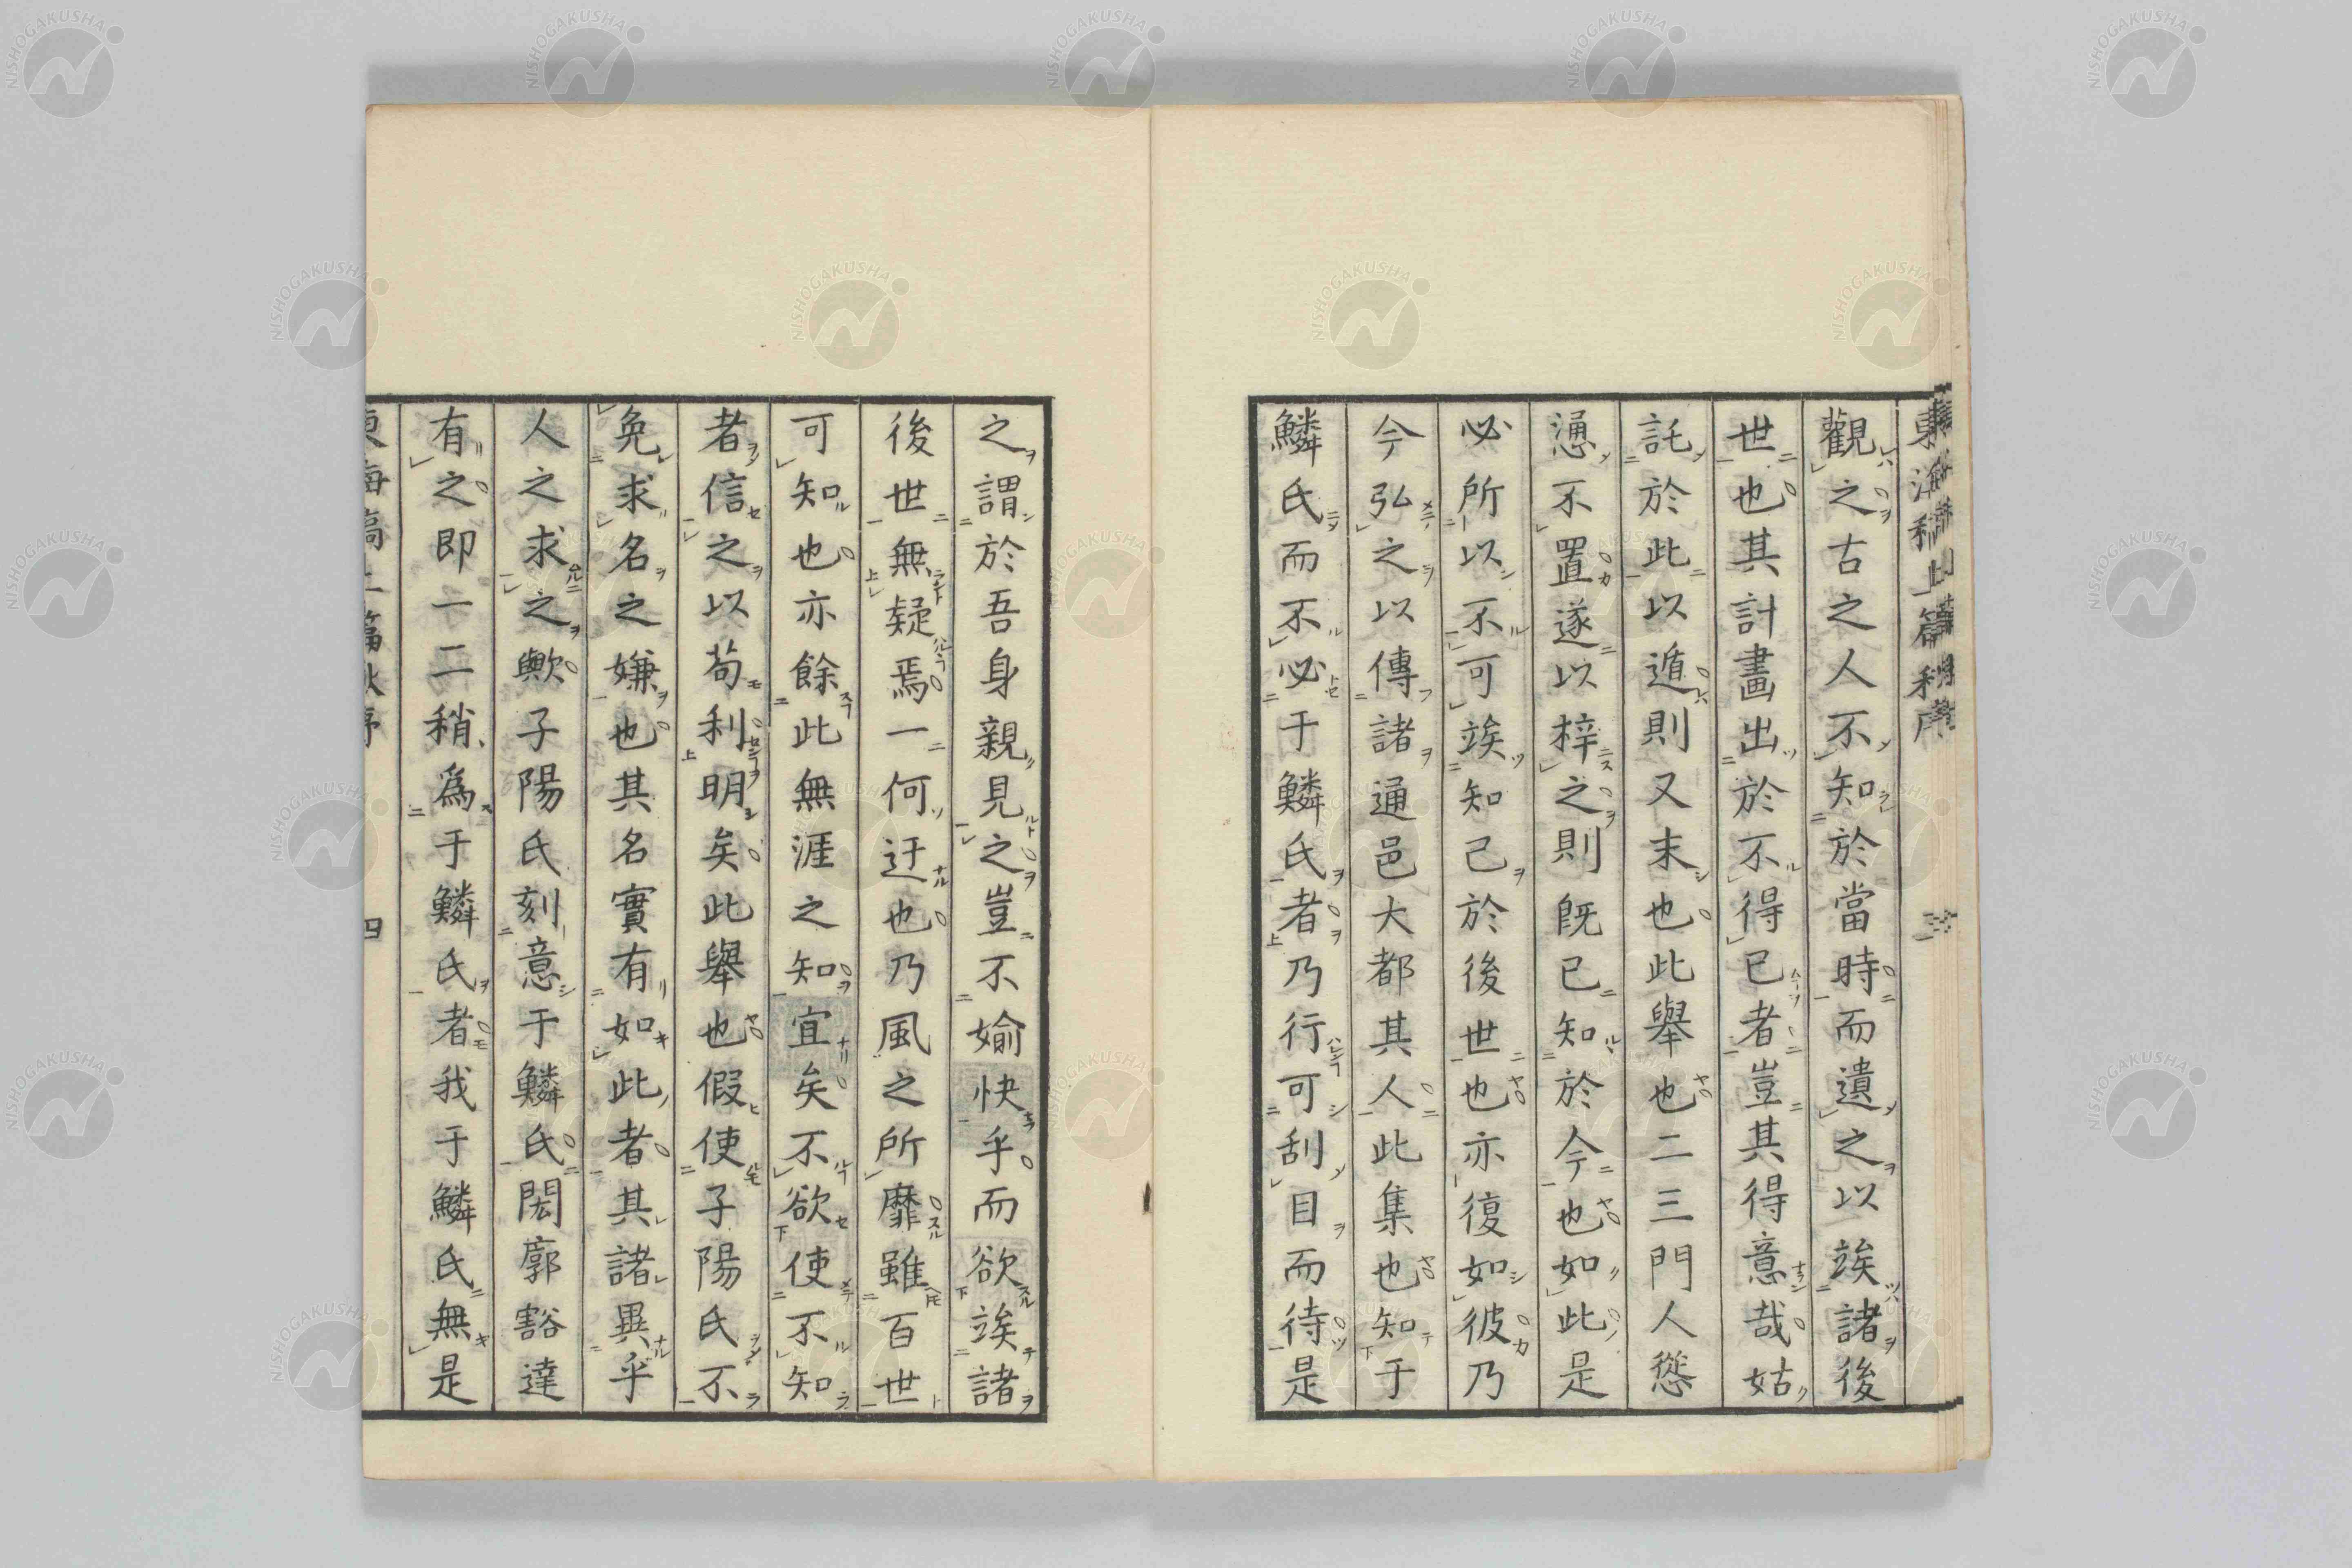 觀之古之人不知於當時而遺之以竢諸後
世也其計畫出於不得已者豈其得意哉姑
託於此以遁則又末也此舉也二三門人慫
慂不置遂以梓之則既已知於今也如此是
必所以不可竢知己於後世也亦復如彼乃
今弘之以傳諸通邑大都其人此集也知于
鱗氏而不必于鱗氏者乃行可刮目而待是
之謂於吾身親見之豈不愉快乎而欲竢諸
後世無疑焉一何迂也乃風之所靡雖百世
可知也亦餘此無涯之知宜矣不欲使不知
者信之以苟利明矣此舉也假使子陽氏不
免求名之嫌也其名實有如此者其諸異乎
人之求之歟子陽氏刻意于鱗氏閎廓豁達
有之即一二稍爲于鱗氏者我于鱗氏無是
四
NISHOGAKUSHA